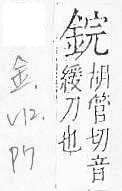 鋎
胡管切音
緩刀也
金.
V12.
P7